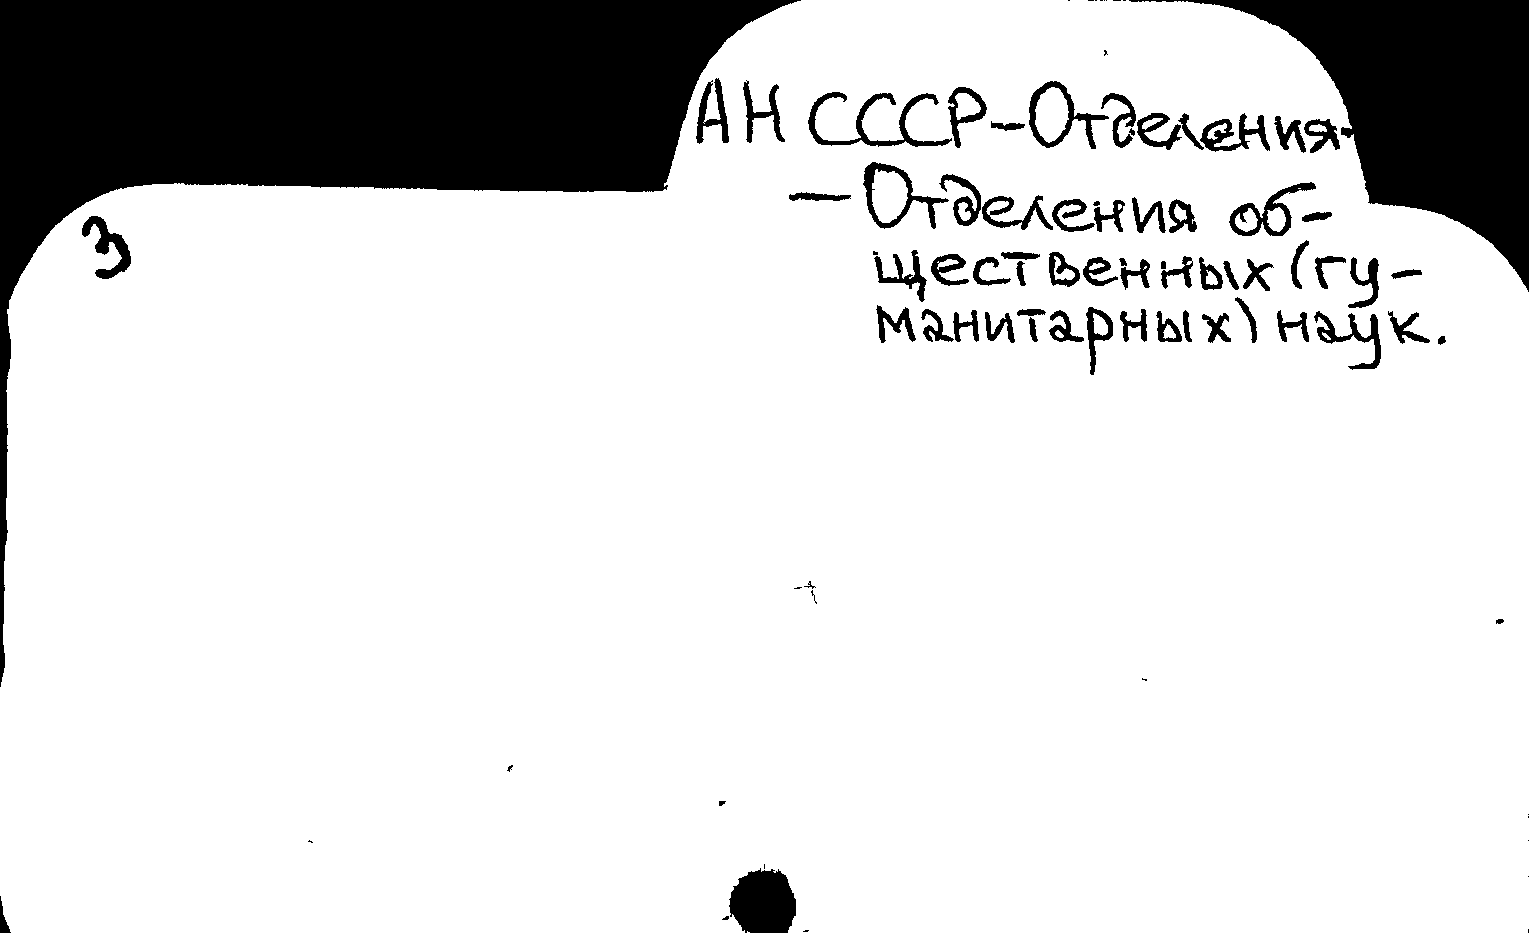 АН СССР-Отделения-
- Отделения об-
щественных (гу-
манитарных) наук.
3